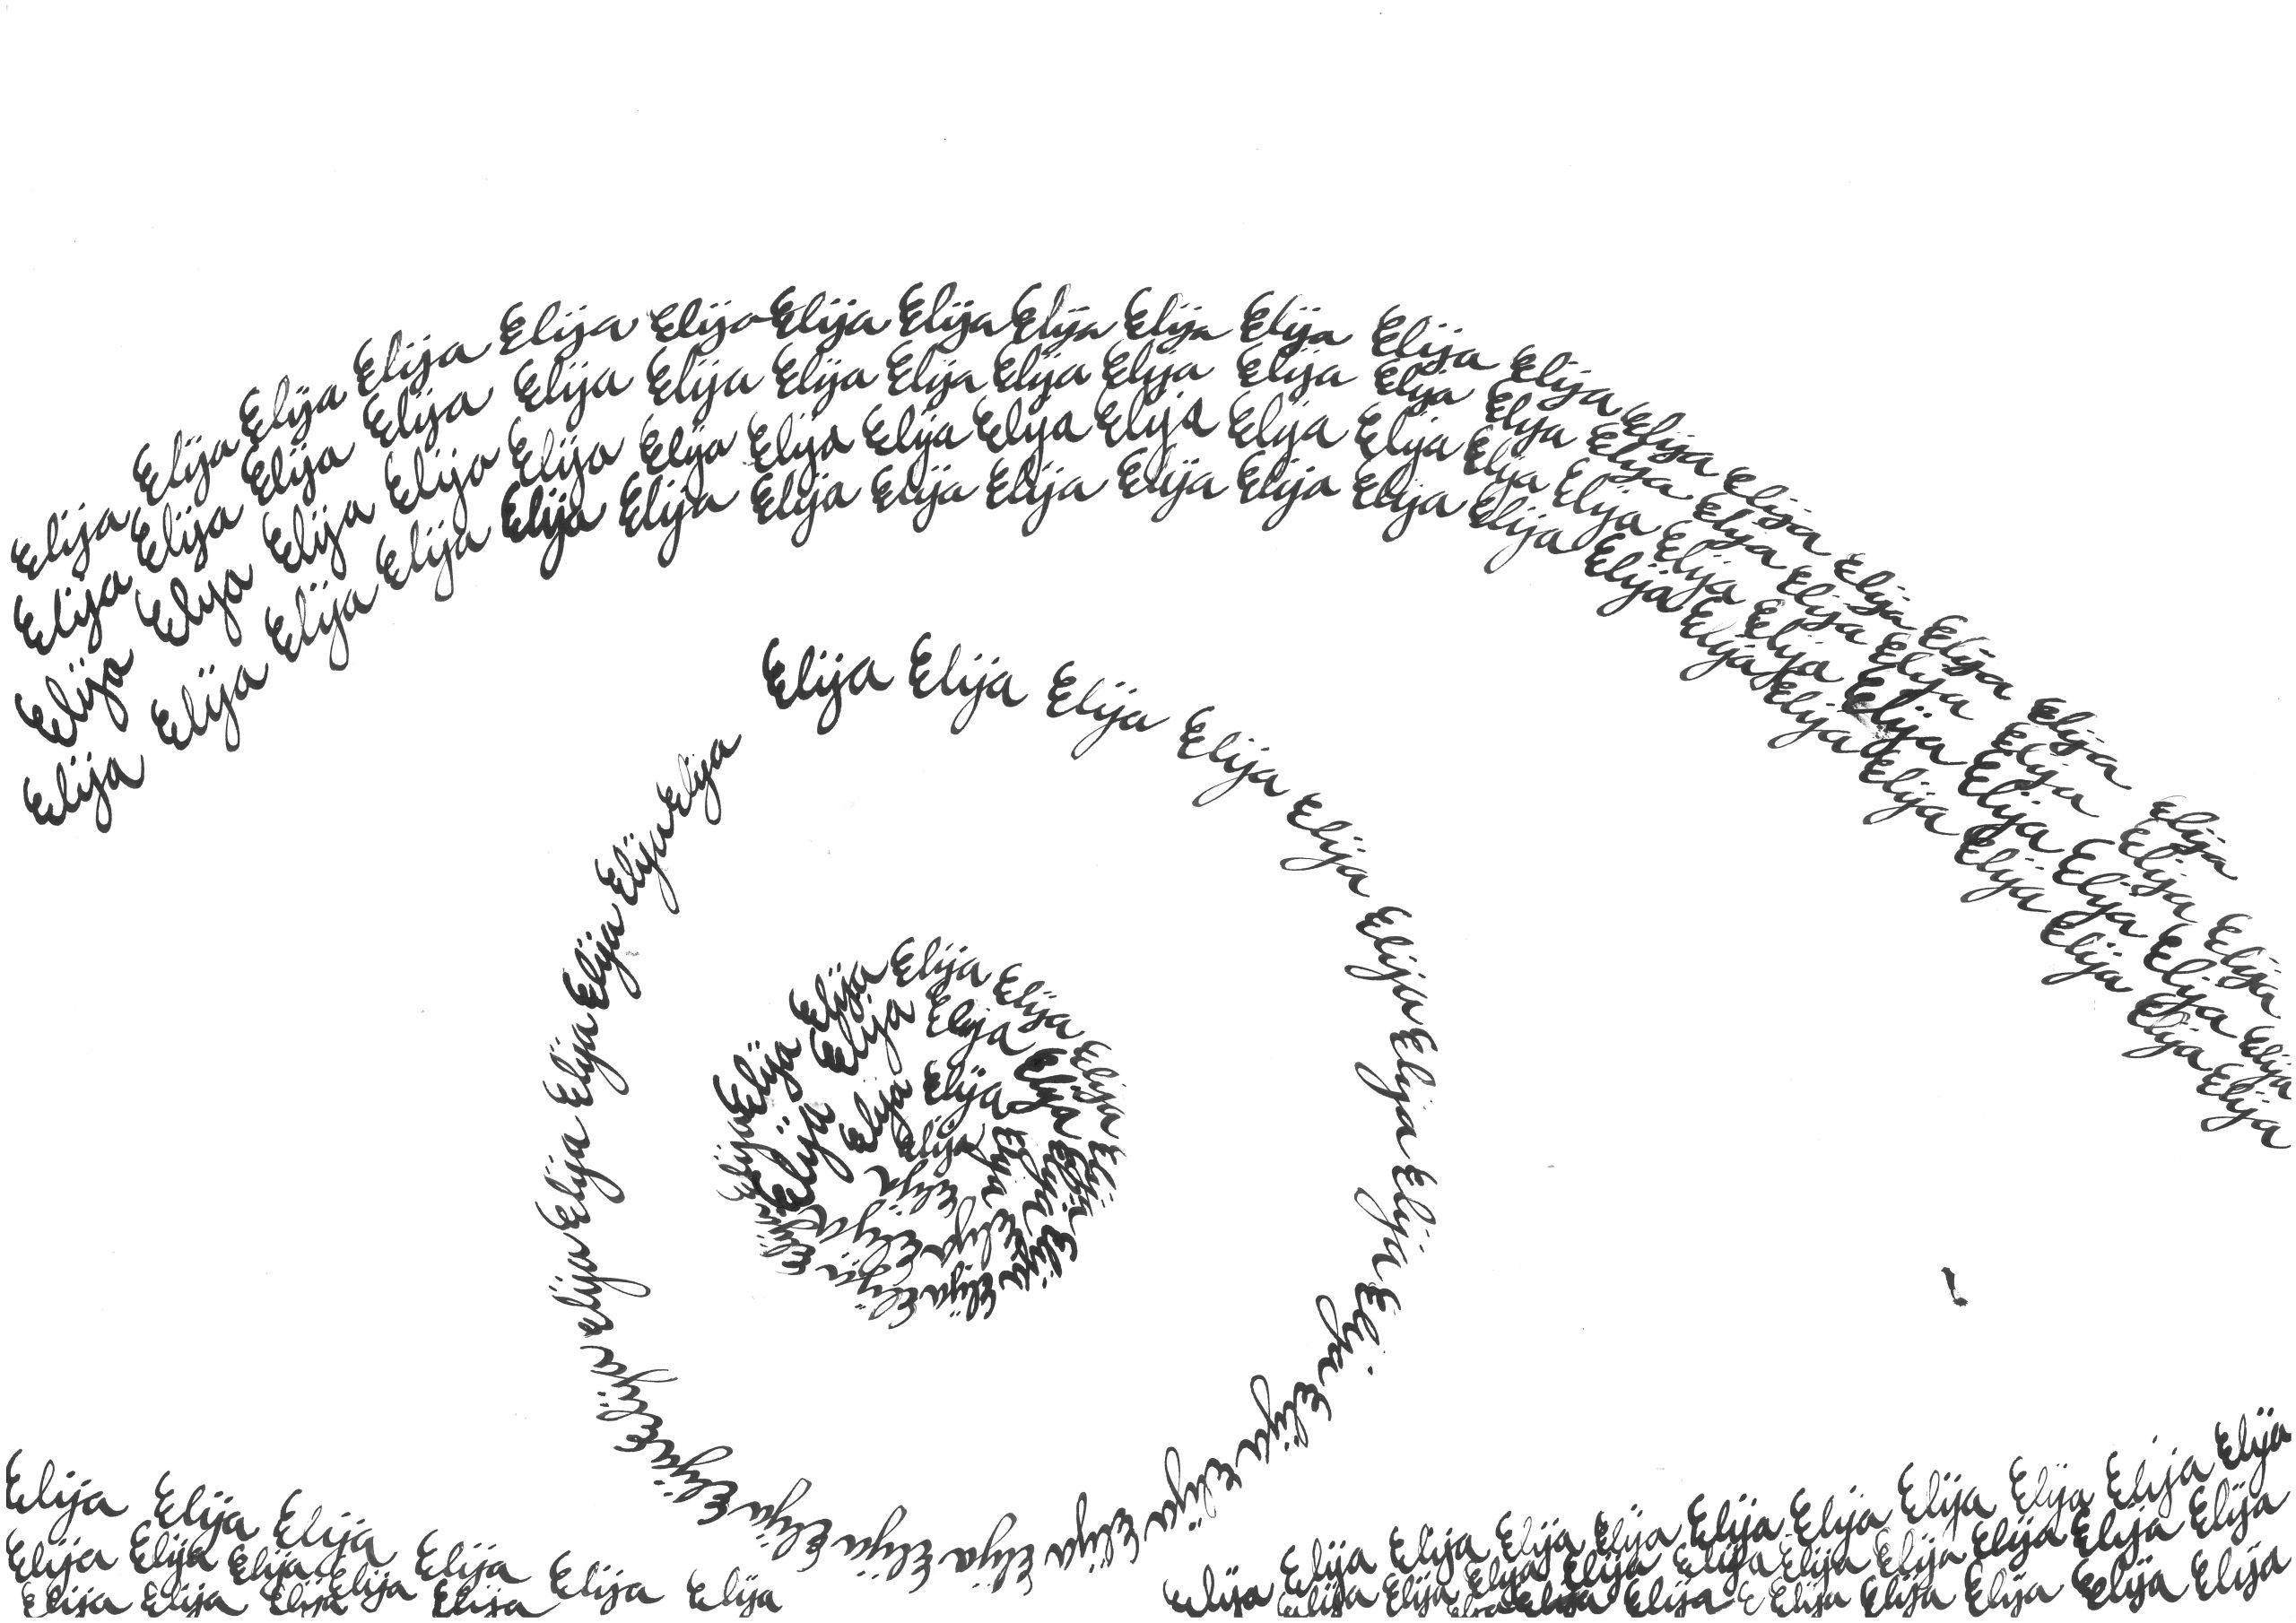 Elija Elija Elija Elija Elija Elija Elija Elija Elija Elija Elija Elija Elija Elija Elija Elija Elija Elija Elija Elija Elija
Elija Elija Elija Elija Elija Elija Elija Elija Elija Elija Elija Elija Elija Elija Elija Elija Elija Elija Elija Elija
Elija Elija Elija Elija Elija Elija Elija Elija Elija Elija Elija Elija Elija Elija Elija Elija Elija Elija Elija
Elija Elija Elija Elija Elija Elija Elija Elija Elija Elija Elija Elija Elija Elija Elija Elija Elija Elija Elija Elija Elija
Elija Elija Elija Elija Elija Elija Elija Elija Elija Elija Elija Elija Elija Elija Elija Elija Elija Elija Elija Elija Elija Elija Elija
Elija Elija Elija Elija Elija Elija Elija Elija Elija Elija Elija Elija
Elija Elija Elija Elija Elija Elija Elija Elija Elija
Elija Elija Elija Elija Elija Elija
Elija Elija Elija
Elija Elija Elija Elija
Elija Elija Elija Elija Elija Elija Elija
Elija Elija Elija Elija Elija Elija Elija Elija Elija Elija
Elija Elija Elija Elija Elija Elija Elija Elija Elija
Elija Elija Elija Elija Elija Elija Elija Elija